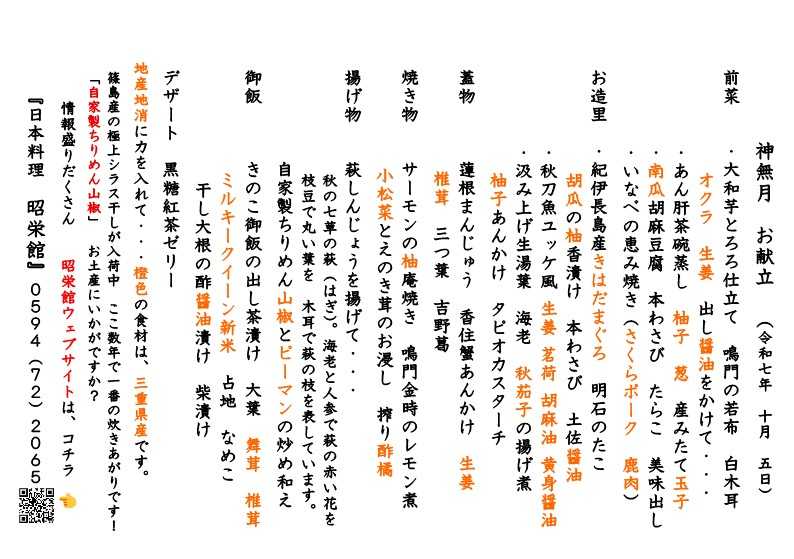 神無月　お献立　（令和七年　十月　五日）
前菜　・大和芋とろろ仕立て　鳴門の若布　白木耳
オクラ　生姜　出し醤油をかけて・・・
・あん肝茶碗蒸し　柚子　葱　産みたて玉子
・南瓜胡麻豆腐　本わさび　たらこ　美味出し
・いなべの恵み焼き（さくらポーク　鹿肉）
お造里　・紀伊長島産きはだまぐろ　明石のたこ
胡瓜の柚香漬け　本わさび　土佐醤油
・秋刀魚ユッケ風　生姜　茗荷　胡麻油　黄身醤油
・汲み上げ生湯葉　海老　秋茄子の揚げ煮
柚子あんかけ　タピオカスターチ
蓋物　蓮根まんじゅう　香住蟹あんかけ　生姜
椎茸　三つ葉　吉野葛
焼き物　サーモンの柚庵焼き　鳴門金時のレモン煮
小松菜とえのき茸のお浸し　搾り酢橘
揚げ物　萩しんじょうを揚げて・・・
秋の七草の萩（はぎ）。海老と人参で萩の赤い花を
枝豆で丸い葉を　木耳で萩の枝を表しています。
自家製ちりめん山椒とピーマンの炒め和え
御飯　きのこ御飯の出し茶漬け　大葉　舞茸　椎茸
ミルキークイーン新米　占地　なめこ
干し大根の酢醤油漬け　柴漬け
デザート　黒糖紅茶ゼリー
地産地消に力を入れて・・・橙色の食材は、三重県産です。
篠島産の極上シラス干しが入荷中　ここ数年で一番の炊きあがりです！
「自家製ちりめん山椒」　お土産にいかがですか？
情報盛りだくさん　昭栄館ウェブサイトは、コチラ 👉
『日本料理　昭栄館』０５９４（７２）２０６５